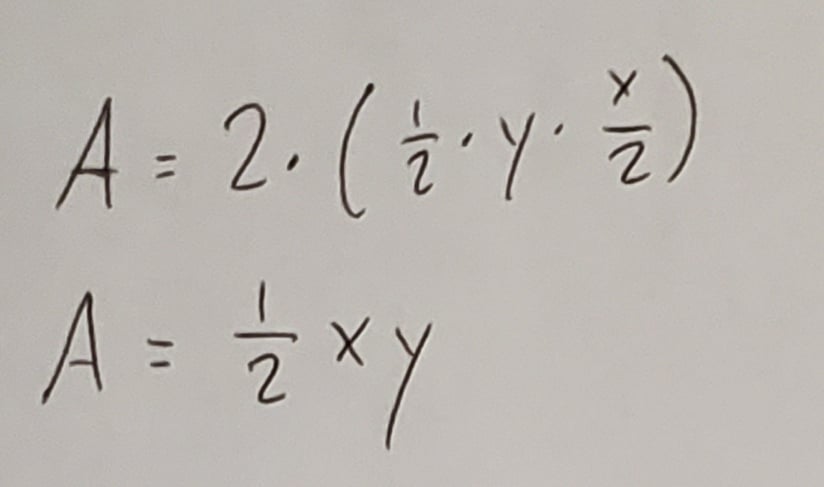 A = 2 · ( 1/2 · y · x/2 )
A = 1/2 x y